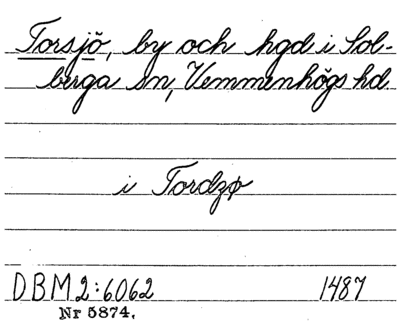 Torsjö, by och hgd i Sol-
berga sn, Vemmenhögs hd.
i Tordzø
DBM 2:6062 1487
Nr 5874.